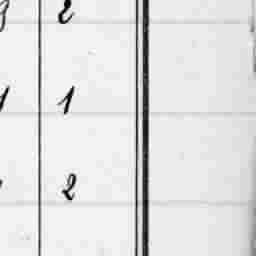 2
1 1
2